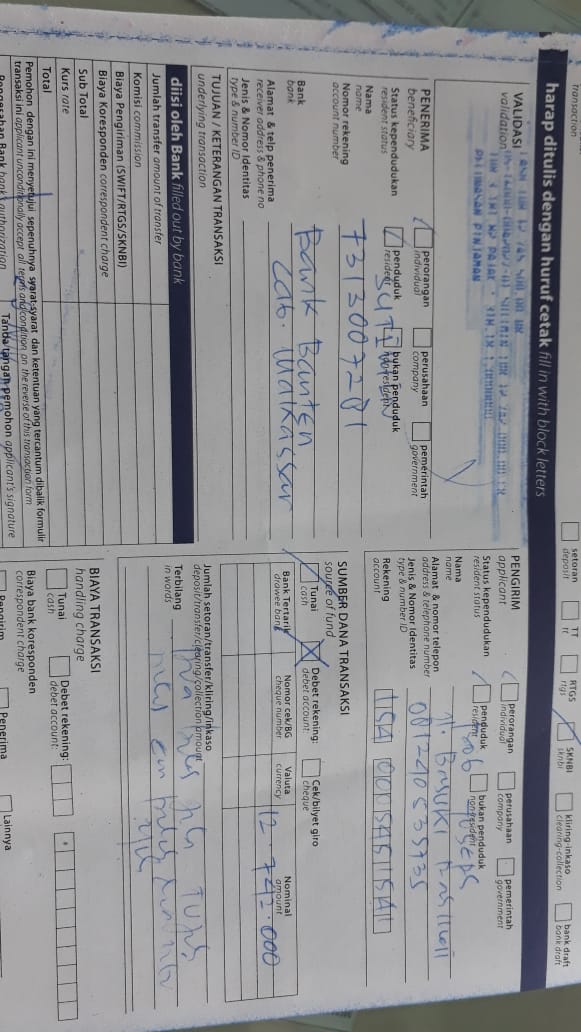 transaction
setoran
deposit
TT
tt
RTGS
rtgs
SKNBI
sknbi
kliring-inkaso
clearing-collection
bank draft
bank draft
harap ditulis dengan huruf cetak fill in with block letters
VALIDASI
validation
PELUNASAN PINJAMAN
PENERIMA
beneficiary
perorangan
individual
perusahaan
company
pemerintah
government
Status kependudukan
resident status
penduduk
resident
bukan penduduk
nonresident
Nama
name
Nomor rekening
account number
7313007281
Bank
bank
Bank Banten
Cab. Makassar
Alamat & telp penerima
receiver address & phone no
Jenis & Nomor Identitas
type & number ID
TUJUAN / KETERANGAN TRANSAKSI
underlying transaction
diisi oleh Bank filled out by bank
Jumlah transfer amount of transfer
Komisi commission
Biaya Pengiriman (SWIFT/RTGS/SKNBI)
Biaya Koresponden correspondent charge
Sub Total
Kurs rate
Total
Pemohon dengan ini menyetujui sepenuhnya syarat-syarat dan ketentuan yang tercantum dibalik formulir
transaksi ini applicant unconditionally accept all terms and condition on the reverse of this transaction form
Pengesahan Bank bank's authorization
Tanda tangan pemohon applicant's signature
PENGIRIM
applicant
perorangan
individual
perusahaan
company
pemerintah
government
Status kependudukan
resident status
penduduk
resident
bukan penduduk
nonresident
Nama
name
Alamat & nomor telepon
address & telephone number
Jl. Basuki
Jenis & Nomor Identitas
type & number ID
081240535735
Rekening
account
SUMBER DANA TRANSAKSI
source of fund
Tunai
cash
Debet rekening:
debet account:
Cek/bilyet giro
cheque
Bank Tertarik
drawee bank
Nomor cek/BG
cheque number
Valuta
currency
Nominal
amount
12.742.000
Jumlah setoran/transfer/kliring/inkaso
deposit/transfer/clearing/collection amount
Terbilang
in words
BIAYA TRANSAKSI
handling charge
Tunai
cash
Debet rekening:
debet account:
Biaya bank koresponden
correspondent charge
Pengirim
Penerima
Lainnya